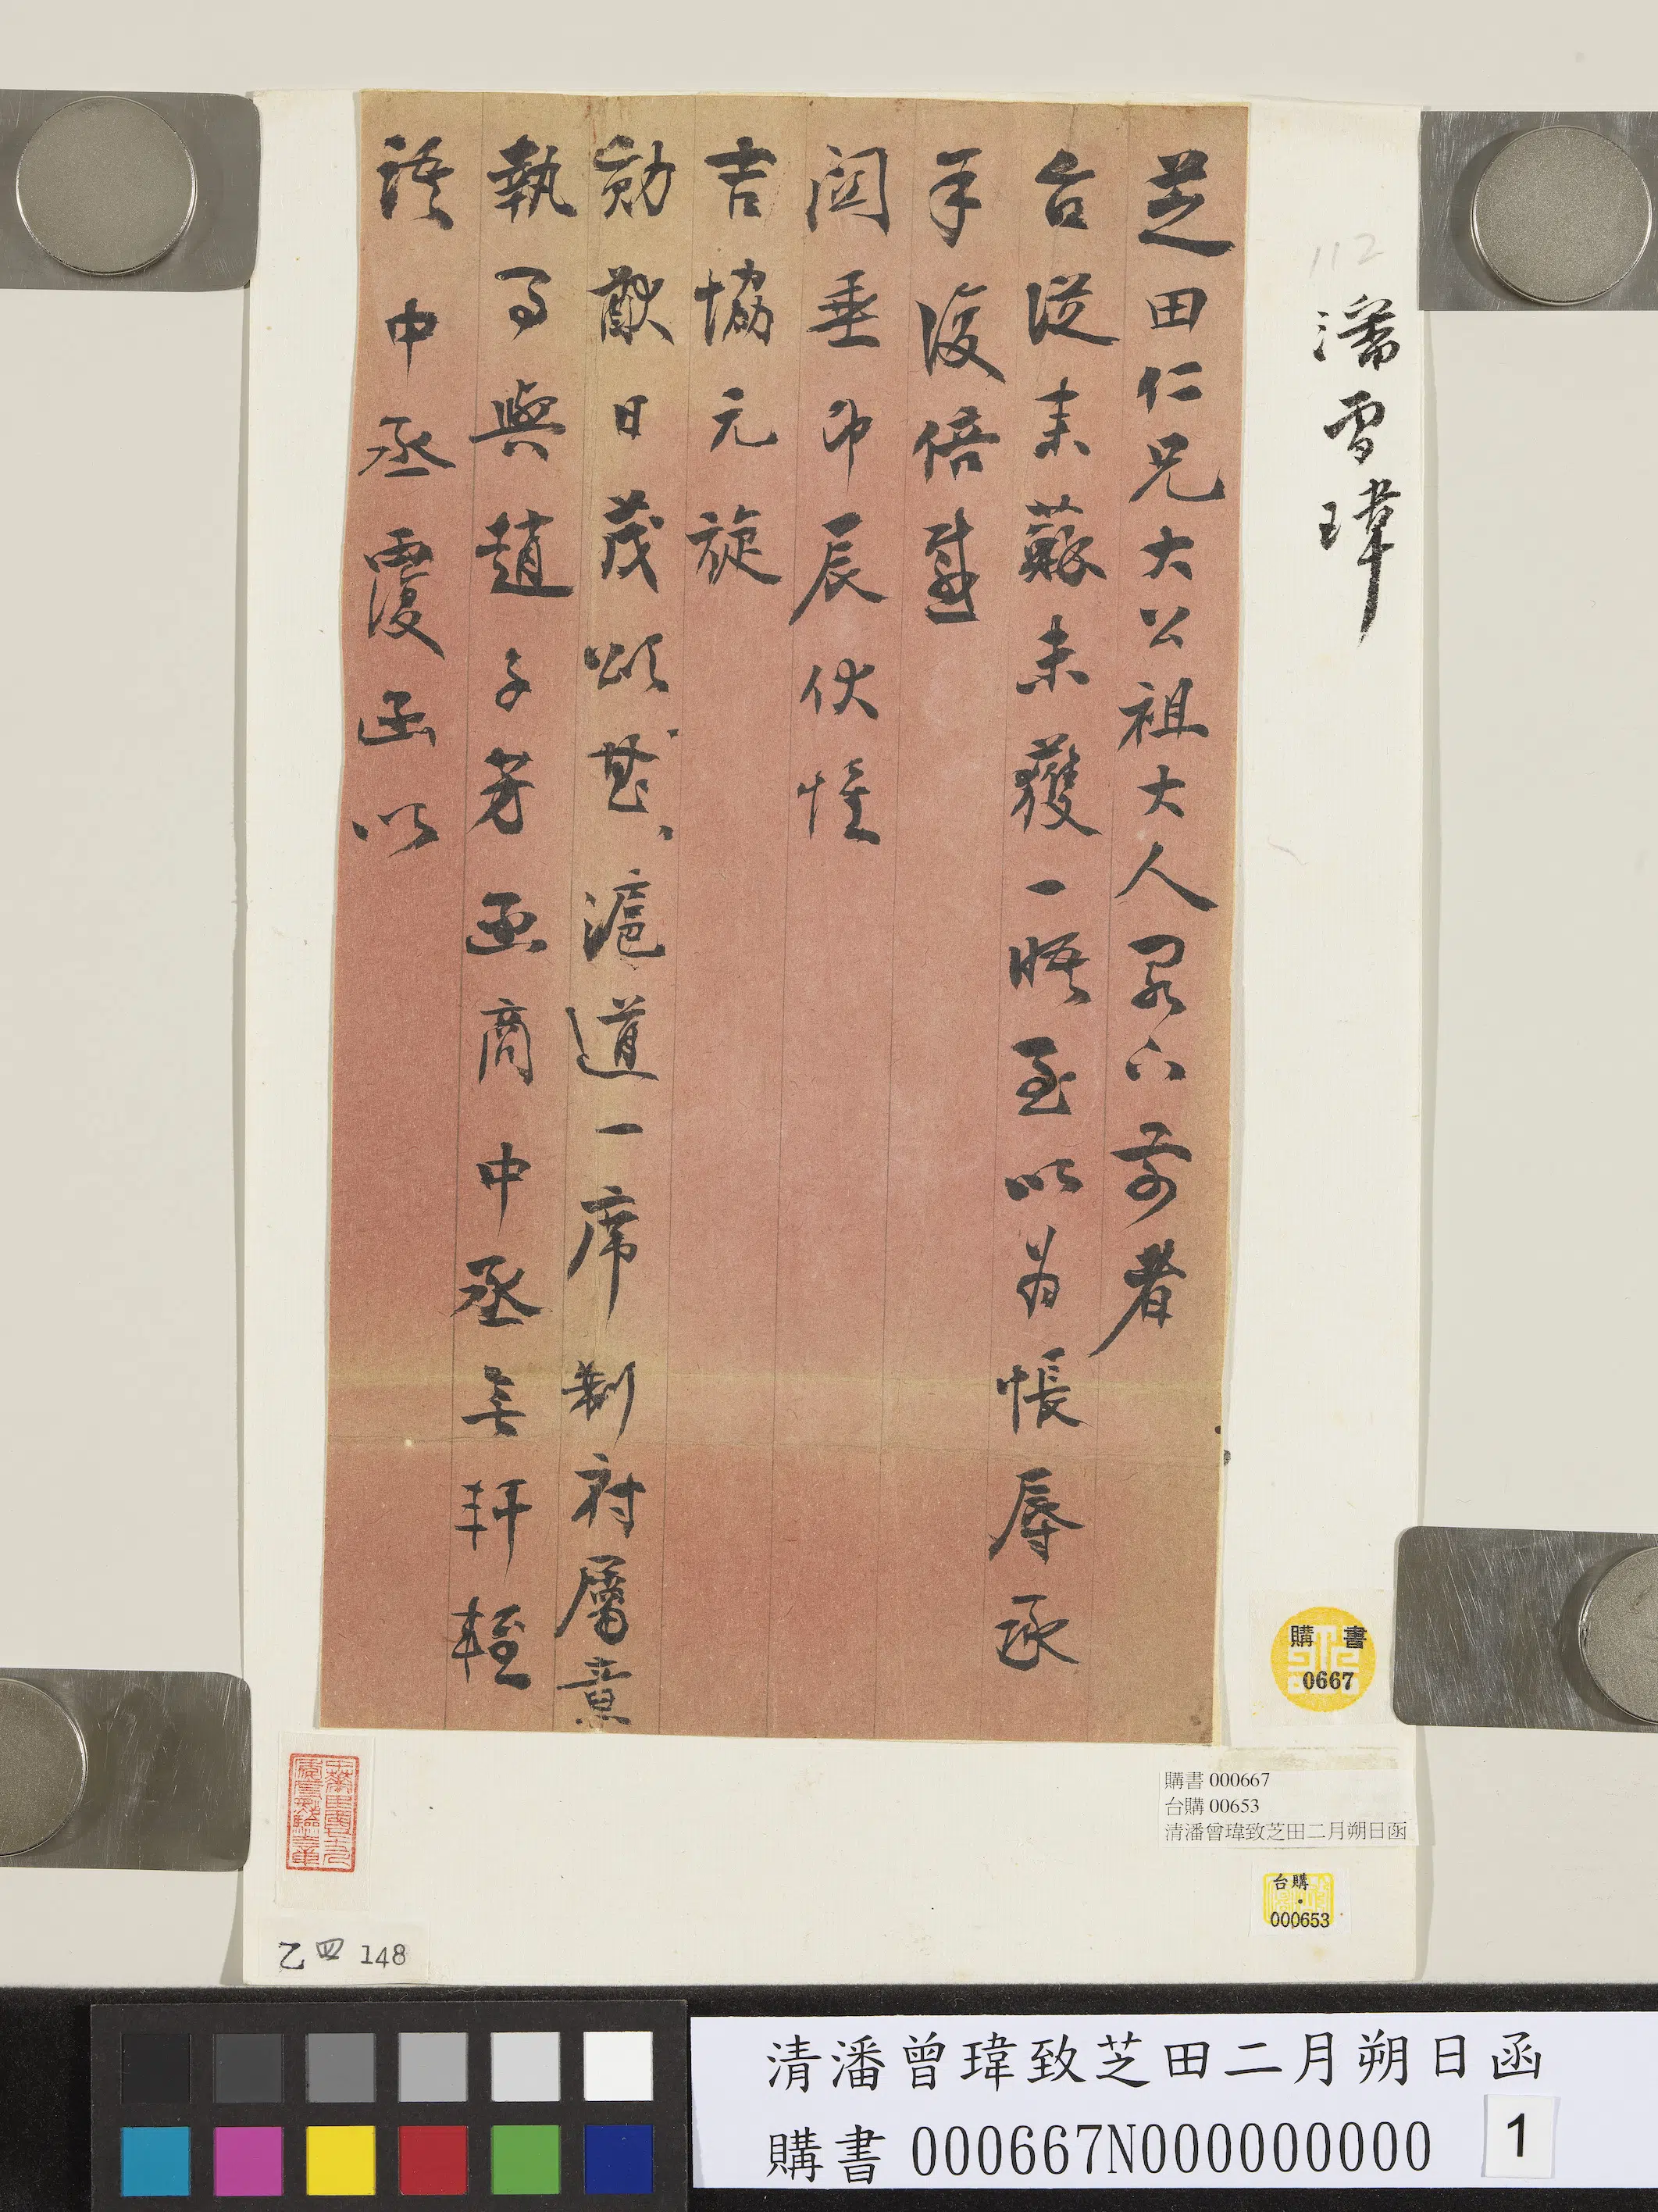 芝田仁兄大公祖大人閣下前者
台從來蘇未獲一晤至以為悵辱承
手復倍感
關垂即辰伏惟
吉協元旋
勛猷日茂以頌以慰滬道一席制府屬意
執事與趙子芳函商中丞無軒輊
語中丞覆函以
潘曾瑋
112
購書
0667
購書 000667
台購 00653
清潘曾瑋致芝田二月朔日函
台購
000653
乙四 148
清潘曾瑋致芝田二月朔日函
購書 000667N000000000
1